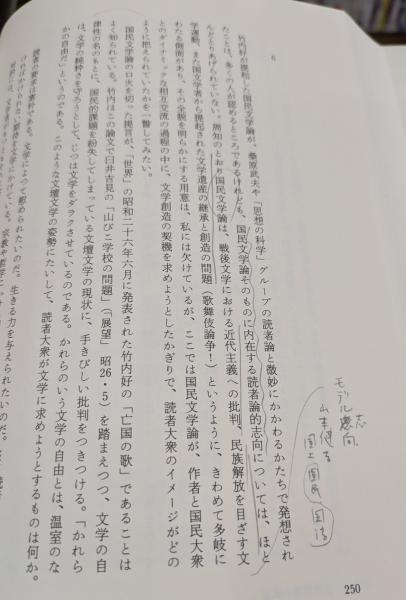 6
竹内好が提起した国民文学論が、桑原武夫や「思想の科学」グループの読者論と微妙にかかわるかたちで発想され
たことは、多くの人が認めるところであるけれども、国民文学論そのものに内在する読者論的志向については、ほと
んどとりあげられていない。周知のとおり国民文学論は、戦後文学における近代主義への批判、民族解放を目ざす文
学運動、また国文学者から提起された文学遺産の継承と創造の問題(歌舞伎論争!)というように、きわめて多岐に
わたる側面があり、その全貌を明らかにする用意は、私には欠けているが、ここでは国民文学論が、作者と国民大衆
とのダイナミックな相互交流の過程の中に、文学創造の契機を求めようとしたかぎりで、読者大衆のイメージがどの
ように把えられていたかを一瞥してみたい。
国民文学論の口火を切った提言が、「世界」の昭和二十六年六月に発表された竹内好の「亡国の歌」であることは
よく知られている。竹内はこの論文で臼井吉見の「山びこ学校の問題」(「展望」昭26・5)を踏まえつつ、文学の自
律性の名のもとに、国民的課題を紛失してしまっている文壇文学の現状に、手きびしい批判をつきつける。「かれら
は、文学の純粋さを守ろうとして、じつは文学をダラクさせているのである。かれらのいう文学の自由とは、温室のな
かの自由だ」というのである。このような文壇文学の姿勢にたいして、読者大衆が文学に求めようとするものは何か。
読者の要求は素朴である。文学によって慰められたいのだ。生きる力を与えられたいのだ。
志
モデル意向
国土 国民 国語
250